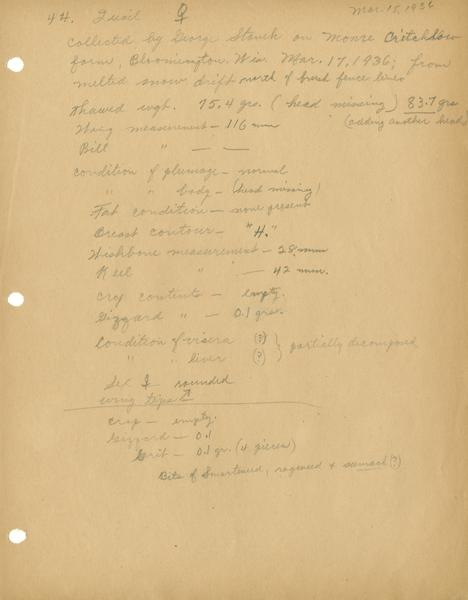 44. Quail ♀ Mar. 18, 1936
collected by George Stanek on Monroe Critchlow
farm, Bloomington, Wis. Mar. 17, 1936; from
melted snow drift north of brush fence line
Thawed wgt. 75.4 grs. (head missing) 83.7 grs
(adding another head)
Wing measurement — 116 mm
Bill " — —
condition of plumage — normal
" " body — (head missing)
Fat condition — none present
Breast contour — "H."
Wishbone measurement — 28 mm
Keel " — 42 mm.
crop contents — empty.
Gizzard " — 0.1 grs.
condition of visera (?) } partially decomposed
" " liver (?)
Sex ♀ rounded
wing tips
crop — empty.
Gizzard — 0.1
Grit — 0.1 gr. (4 pieces)
Bits of Smartweed, ragweed & sumac (?)